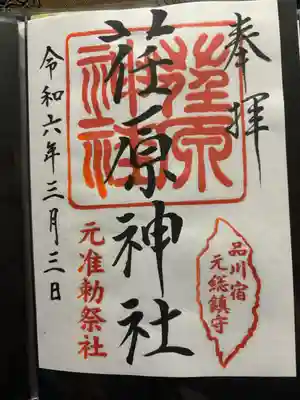 奉拝
荏原神社
荏原
神社
元准勅祭社
品川宿
元総鎮守
令和六年三月三日